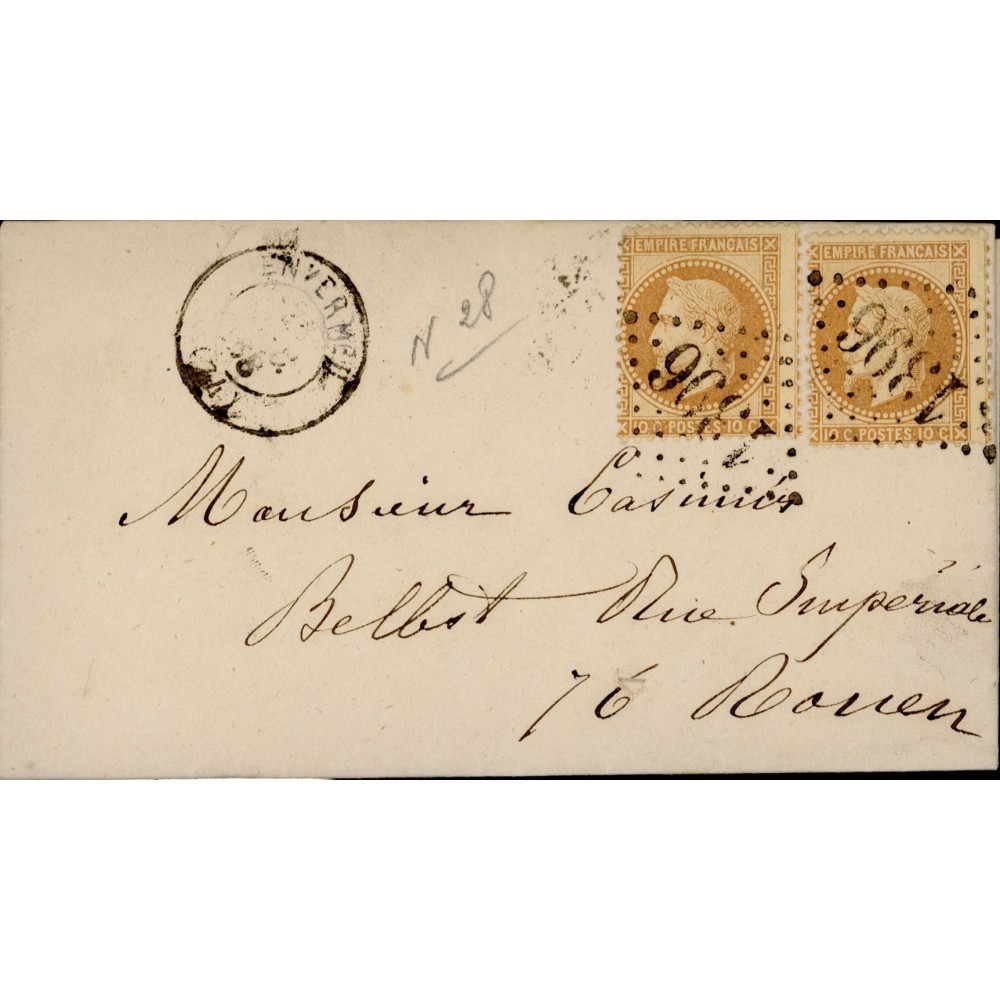 ENVERMEU
N 28
EMPIRE FRANÇAIS
10 C. POSTES. 10 C.
EMPIRE FRANÇAIS
10 C. POSTES. 10 C.
1396
1396
Monsieur Casimir
Rue Impériale
76 Rouen